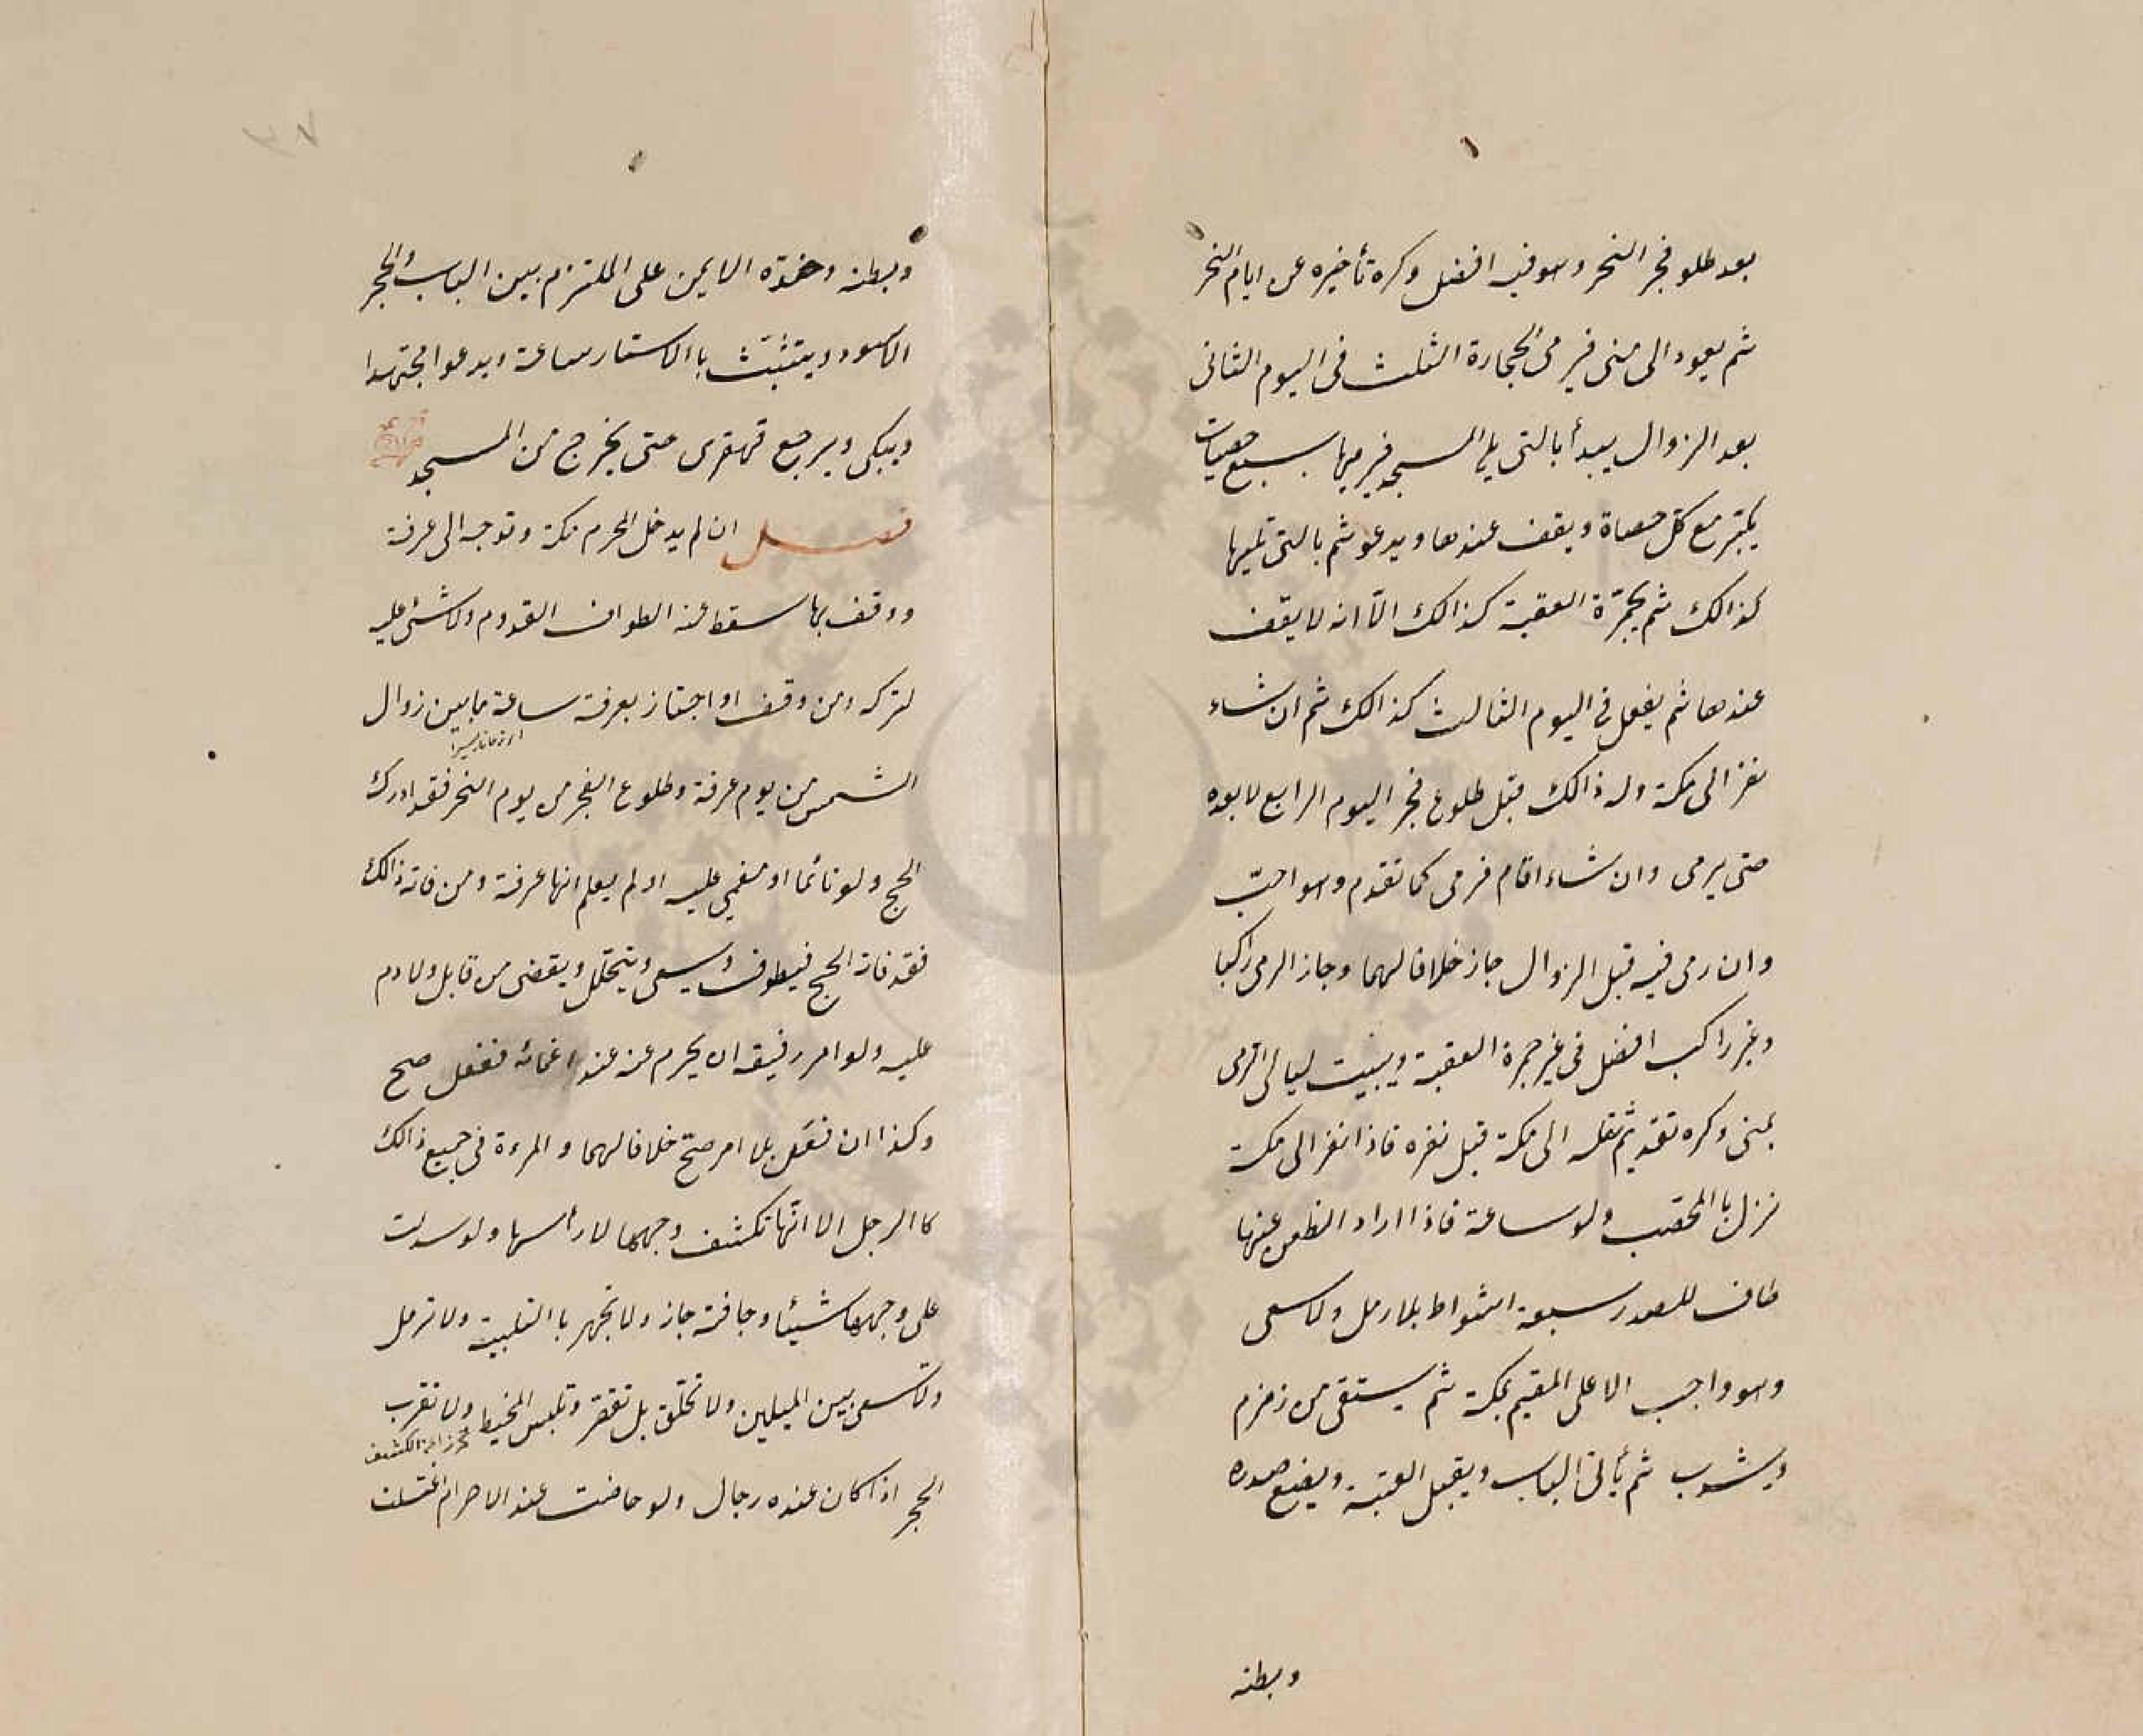 بعد طلو فجر النحر وهو فيه افضل وكره تأخيره عن ايام النحر
ثم يعود الى منى فيرمى الجمارة الثلث فى اليوم الثانى
بعد الزوال يبدأ بالتى يلى المسجد فيرميها بسبع حصيات
يكبّر مع كل حصاة ويقف عندها ويدعو ثم بالتى تليها
كذالك ثم بجمرة العقبة كذالك الّا انه لا يقف
عندها ثم يفعل فى اليوم الثالث كذالك ثم ان شاء
نفر الى مكة وله ذالك قبل طلوع فجر اليوم الرابع لا بعده
حتى يرمى وان شاء اقام فرمى كما تقدم وهو احبّ
وان رمى فيه قبل الزوال جاز خلافا لهما وجاز الرمى راكبا
وغير راكب افضل فى غير جمرة العقبة ويبيت ليالى الرمى
بمنى وكره تقديم ثقله الى مكة قبل نفره فاذا نفر الى مكة
نزل با المحصب ولو ساعة فاذا اراد الظعن عنها
طاف للصدر سبعة اشواط بلا رمل ولا سعى
وهو واجب الا على المقيم بمكة ثم يستقى من زمزم
ويشرب ثم يأتى الباب ويقبل العتبة ويضع صدره
وبطنه
٣٧
وبطنه وخدّه الايمن على الملتزم بين الباب والحجر
الاسود ويتشبّث با الاستار ساعة ويدعوا مجتهدا
ويبكى ويرجع قهقرى حتى يخرج من المسجد
فصل ان لم يدخل المحرم مكة وتوجه الى عرفة
ووقف بها سقط عنه الطواف القدوم ولا شئ عليه
لتركه ومن وقف او اجتاز بعرفة ساعة ما بين زوال
الشمس من يوم عرفة وطلوع الفجر من يوم النحر فقد ادرك
الحج ولو نائما او مغمى عليه او لم يعلم انها عرفة ومن فاته ذالك
فقد فاته الحج فيطوف ويسعى ويتحلّل ويقضى من قابل ولا دم
عليه ولو امر رفيقه ان يحرم عنه عند اغمائه ففعل صح
وكذا ان فعل بلا امر صحّ خلافا لهما والمرءة فى جميع ذالك
كا الرجل الا انّها تكشف وجهها لا رأسها ولو سدلت
على وجهها شيئا وجافته جاز ولا تجهر با التلبية ولا ترمل
ولا تسعى بين الميلين ولا تحلق بل تقصر وتلبس المخيط ولا تقرب
الحجر اذا كان عنده رجال ولو حاضت عند الاحرام اغتسلت